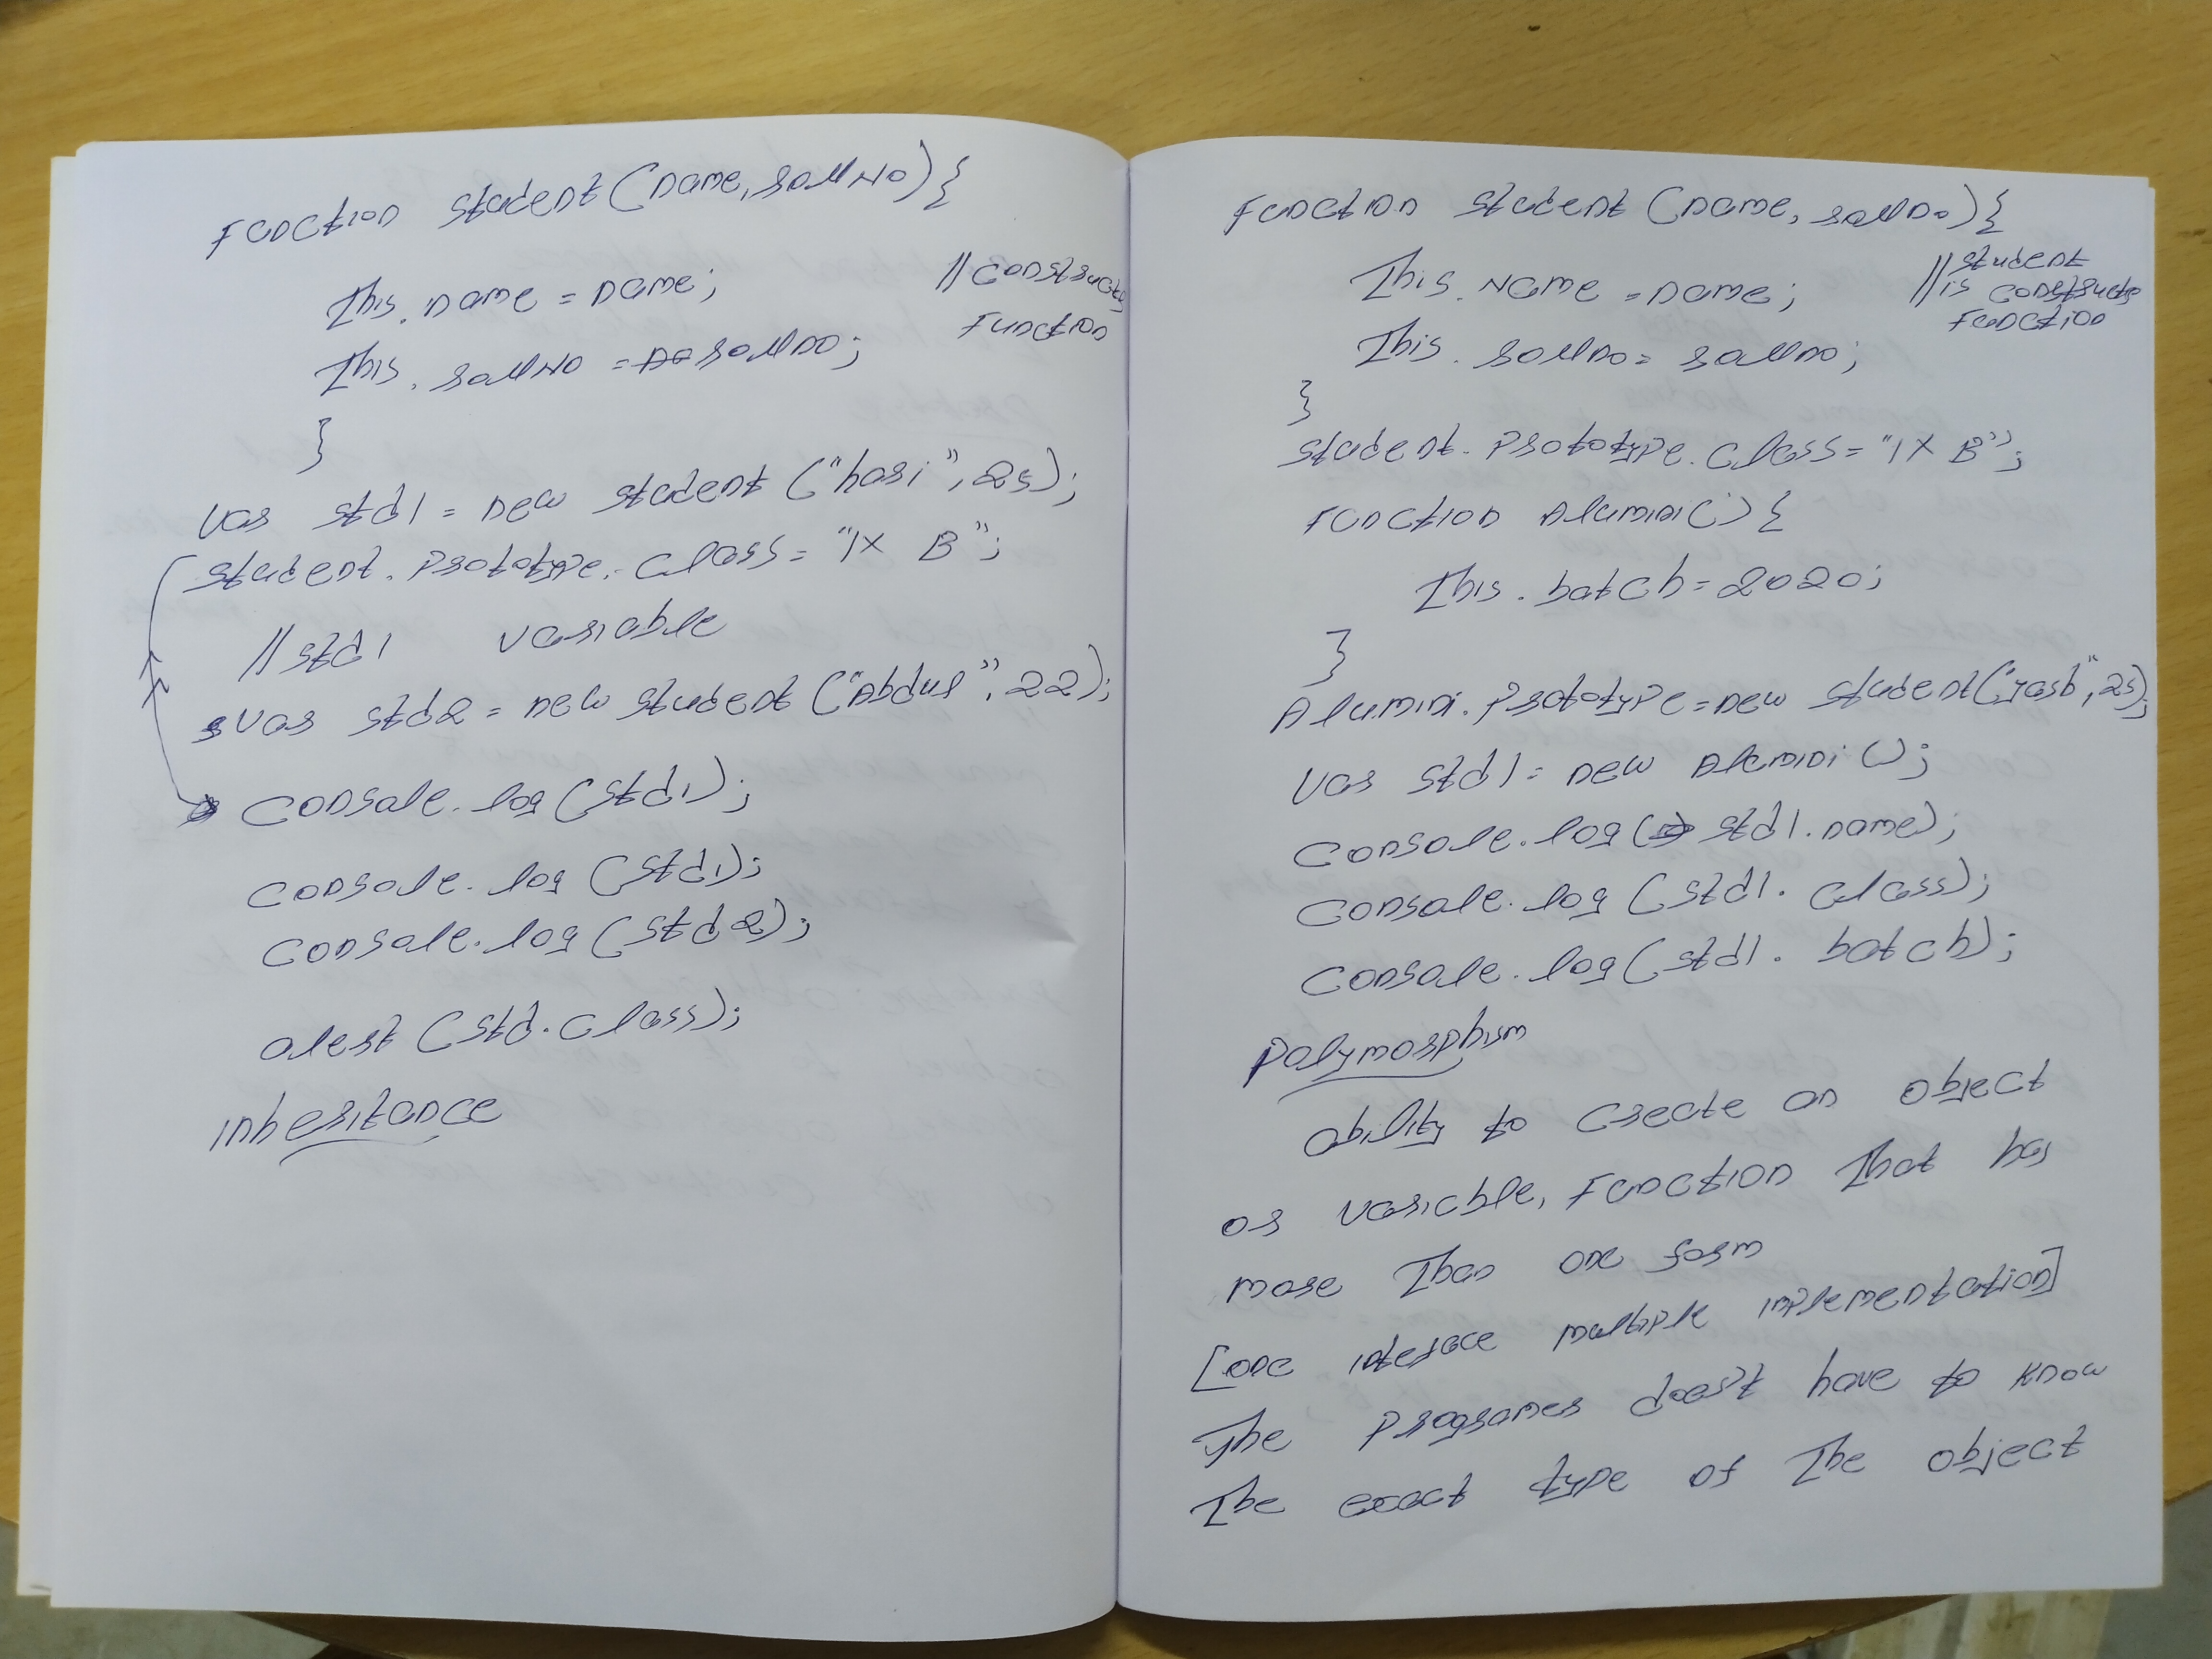 Function student(name, rollNo){
This.name = name; // Constructor
This.rollNo = rollno; Function
}
var std1 = new student ("hari", 25);
student.prototype.class = "IX B";
// std1 variable
var std2 = new student ("Abdul", 22);
console.log(std1);
console.log (std1);
console.log (std2);
alert (std.class);
inheritance
Function student (name, rollno){
This.Name = name; // student
is constructor
This.rollno = rollno; Function
}
student.prototype.class = "IX B";
Function Alumini() {
This.batch = 2020;
}
Alumini.prototype = new student("yash", 25);
var std1 = new Alumini ();
console.log( std1.name);
console.log (std1.class);
console.log (std1.batch);
Polymorphism
ability to create an object
or variable, Function That has
more Than one form
[one inteface multiple implementation]
The programer doesn't have to know
The exact type of The object